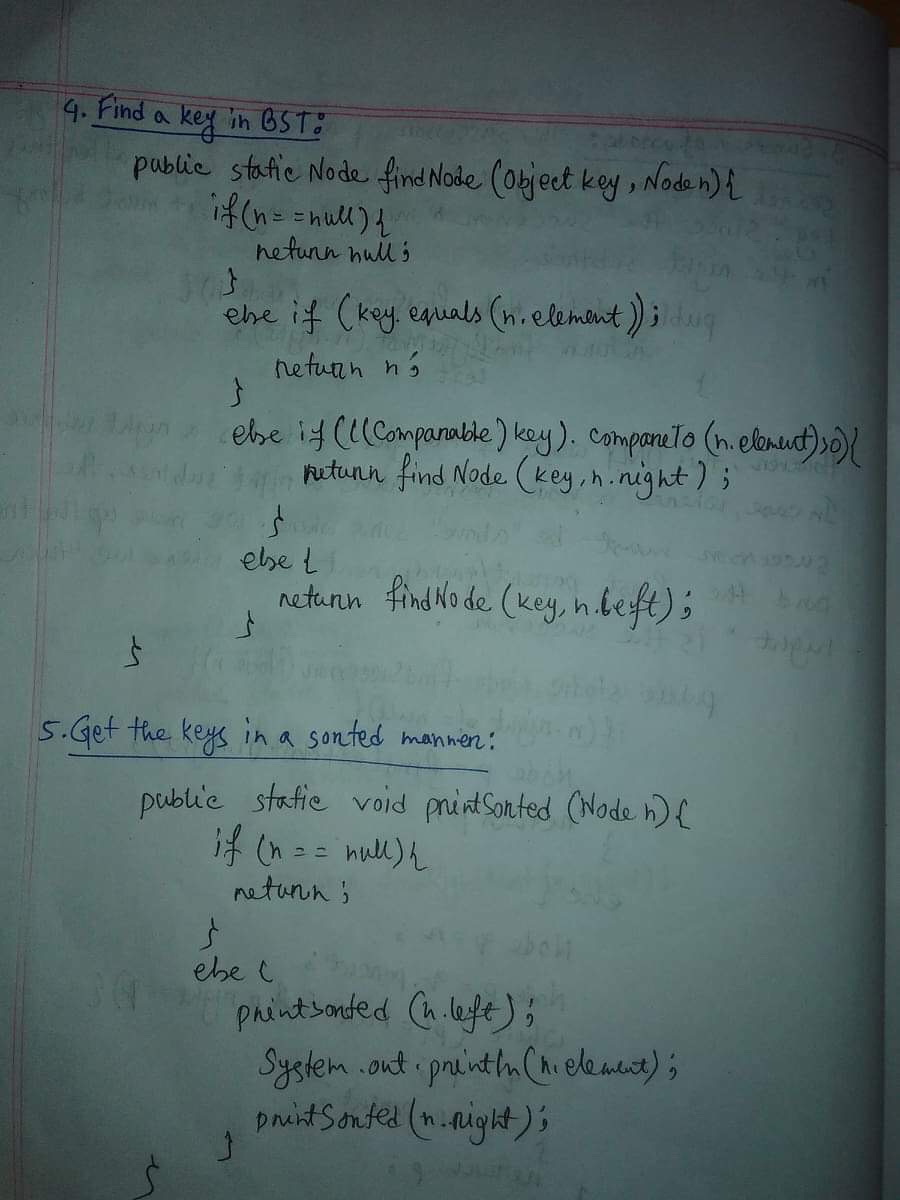 4. Find a key in BST:
public static Node findNode (Object key, Node n){
if(n==null){
return null;
}
else if (key.equals(n.element));
return n;
}
else if(((Comparable)key).compareTo(n.element)>0){
return findNode(key,n.right);
}
else {
return findNode(key,n.left);
}
}
5. Get the keys in a sorted manner:
public static void printSorted (Node n){
if (n == null){
return;
}
else {
printsorted (n.left);
System.out.println(n.element);
printSorted(n.right);
}
}